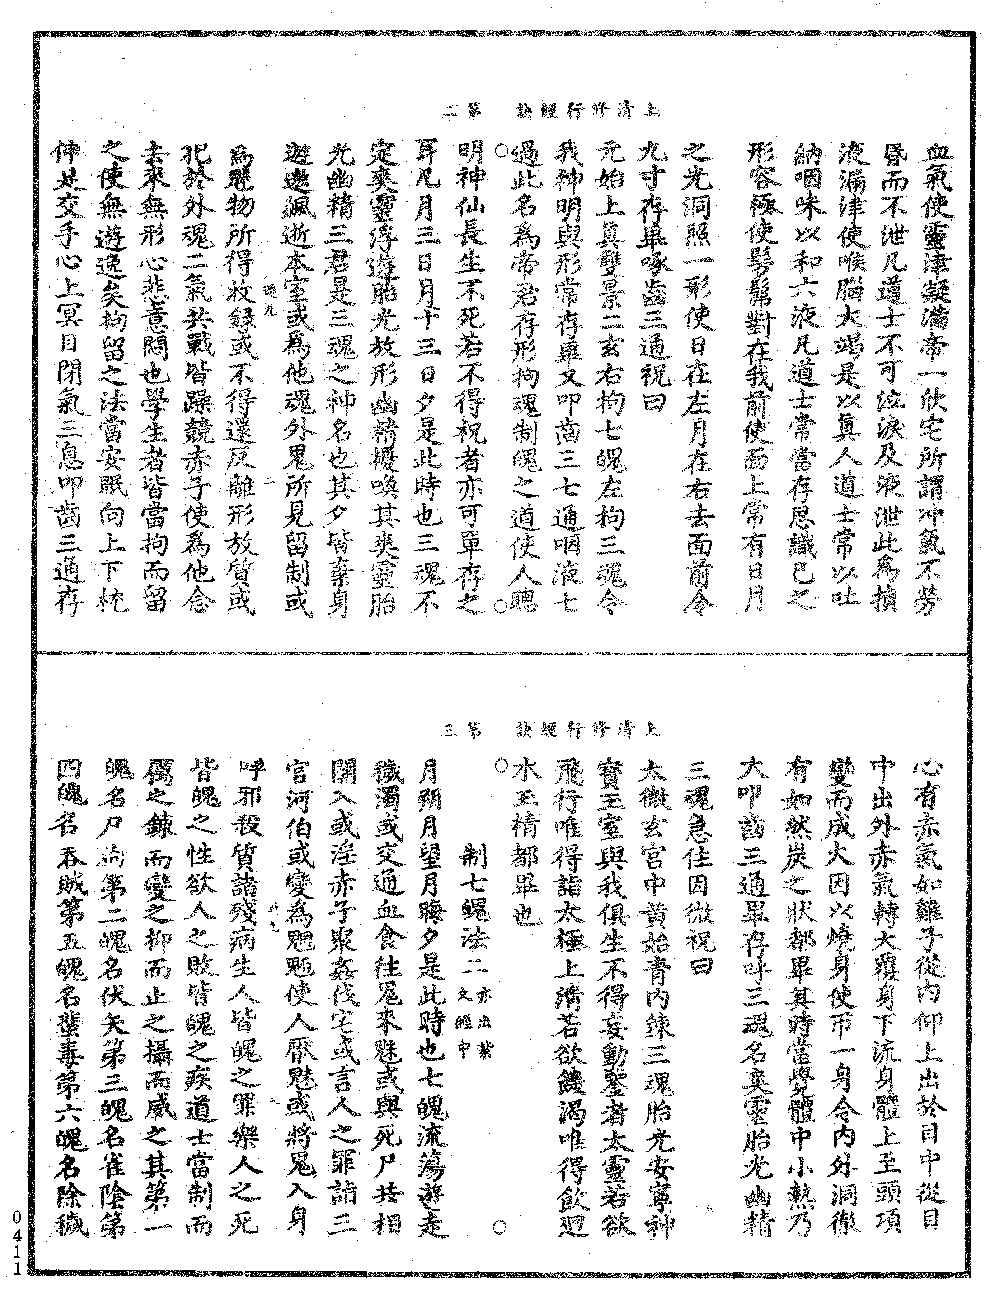 上清修行經訣　第二
血氣使靈津凝滿帝一欣宅所謂冲氣不勞
昏而不泄凡道士不可泣淚及液泄此為損
液漏津使喉腦大竭是以真人道士常以吐
納咽味以和六液凡道士常當存思識己之
形容極使髣髴對在我前使面上常有日月
之光洞照一形使日在左月在右去面前令
九寸存畢啄齒三通祝曰
元始上真雙景二玄右拘七魄左拘三魂令
我神明與形常存畢又叩齒三七通咽液七
過此名為帝君存形拘魂制魄之道使人聰
明神仙長生不死若不得祝者亦可單存之
耳凡月三日月十三日夕是此時也三魂不
定爽靈浮遊胎光放形幽精擾喚其爽靈胎
光幽精三君是三魂之神名也其夕皆棄身
遊遨飆逝本室或為他魂外鬼所見留制或
為魅物所得收錄或不得還反離形放質或
犯於外魂二氣共戰皆躁競赤子使為他念
去來無形心悲意悶也學生者皆當拘而留
之使無遊逸矣拘留之法當安眠向上下枕
伸足交手心上冥目閉氣三息叩齒三通存
上清修行經訣　第三
心有赤氣如雞子從內仰上出於目中從目
中出外赤氣轉大覆身下流身體上至頭項
變而成火因以燒身使帀一身令內外洞徹
有如然炭之狀都畢其時當覺體中小熱乃
大叩齒三通畢存呼三魂名爽靈胎光幽精
三魂急住因微祝曰
太微玄宮中黃始青內鍊三魂胎光安寧神
寶玉室與我俱生不得妄動鑒者太靈若欲
飛行唯得詣太極上清若欲饑渴唯得飲迴
水玉精都畢也
制七魄法二亦出紫文經中
月朔月望月晦夕是此時也七魄流蕩遊走
穢濁或交通血食往冤來魅或與死尸共相
關入或淫赤子聚姦伐宅或言人之罪詣三
官河伯或變為魍魎使人厭魅或將鬼入身
呼邪殺質諸殘病生人皆魄之罪樂人之死
皆魄之性欲人之敗皆魄之疾道士當制而
厲之鍊而變之抑而止之攝而威之其第一
魄名尸苟第二魄名伏矢第三魄名雀陰第
四魄名吞賊第五魄名蜚毒第六魄名除穢
0411